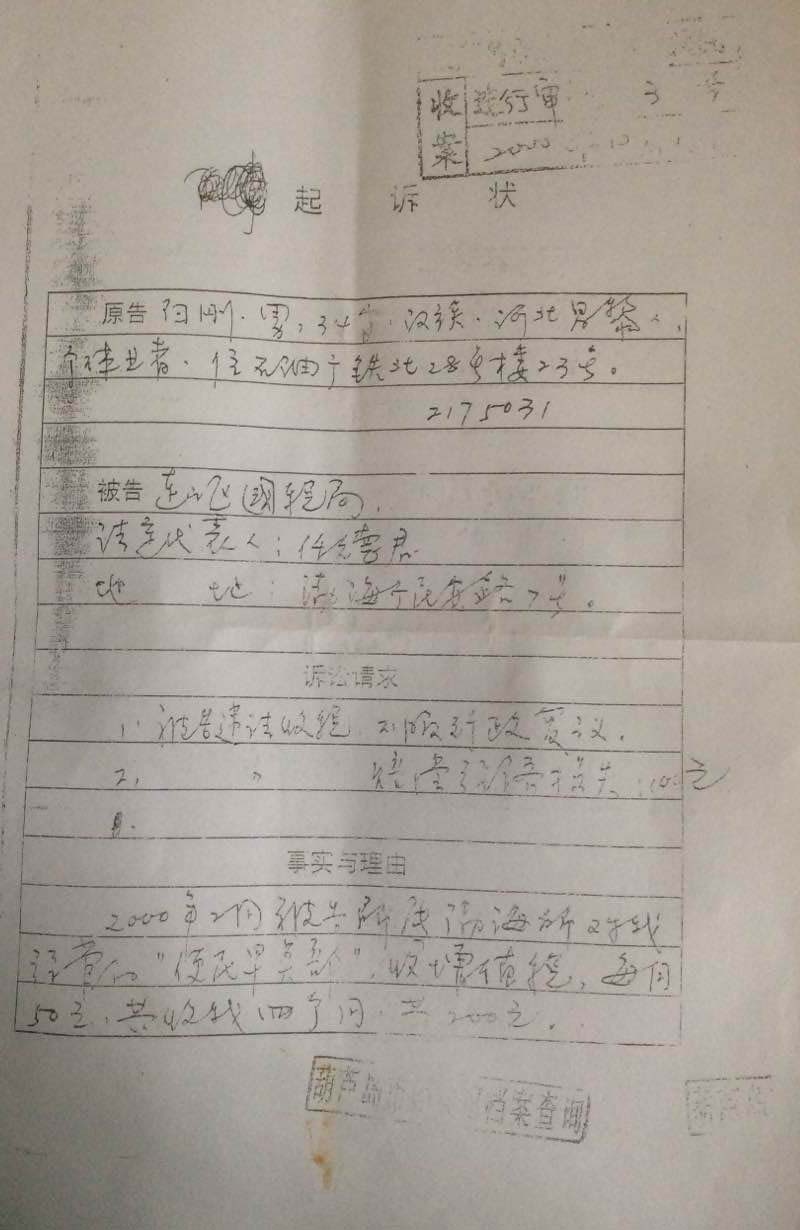 收案 行审 3 号
2000 10
起诉状
原告 刚、男，34岁、汉族、河北 人，
个体业者、住石油厂铁北28号楼23号。
2175031
被告 连山区國税局，
法定代表人：任
地 地：渤海 民安路7号。
诉讼请求
1、被告违法收税 行政复议。
2、 〃 赔偿经济损失 元
事实与理由
2000年2月被告所属渤海所对我
经营的“便民早点部”，收增值税，每月
50元、共收我四个月、共200元。
葫芦岛 档案查询